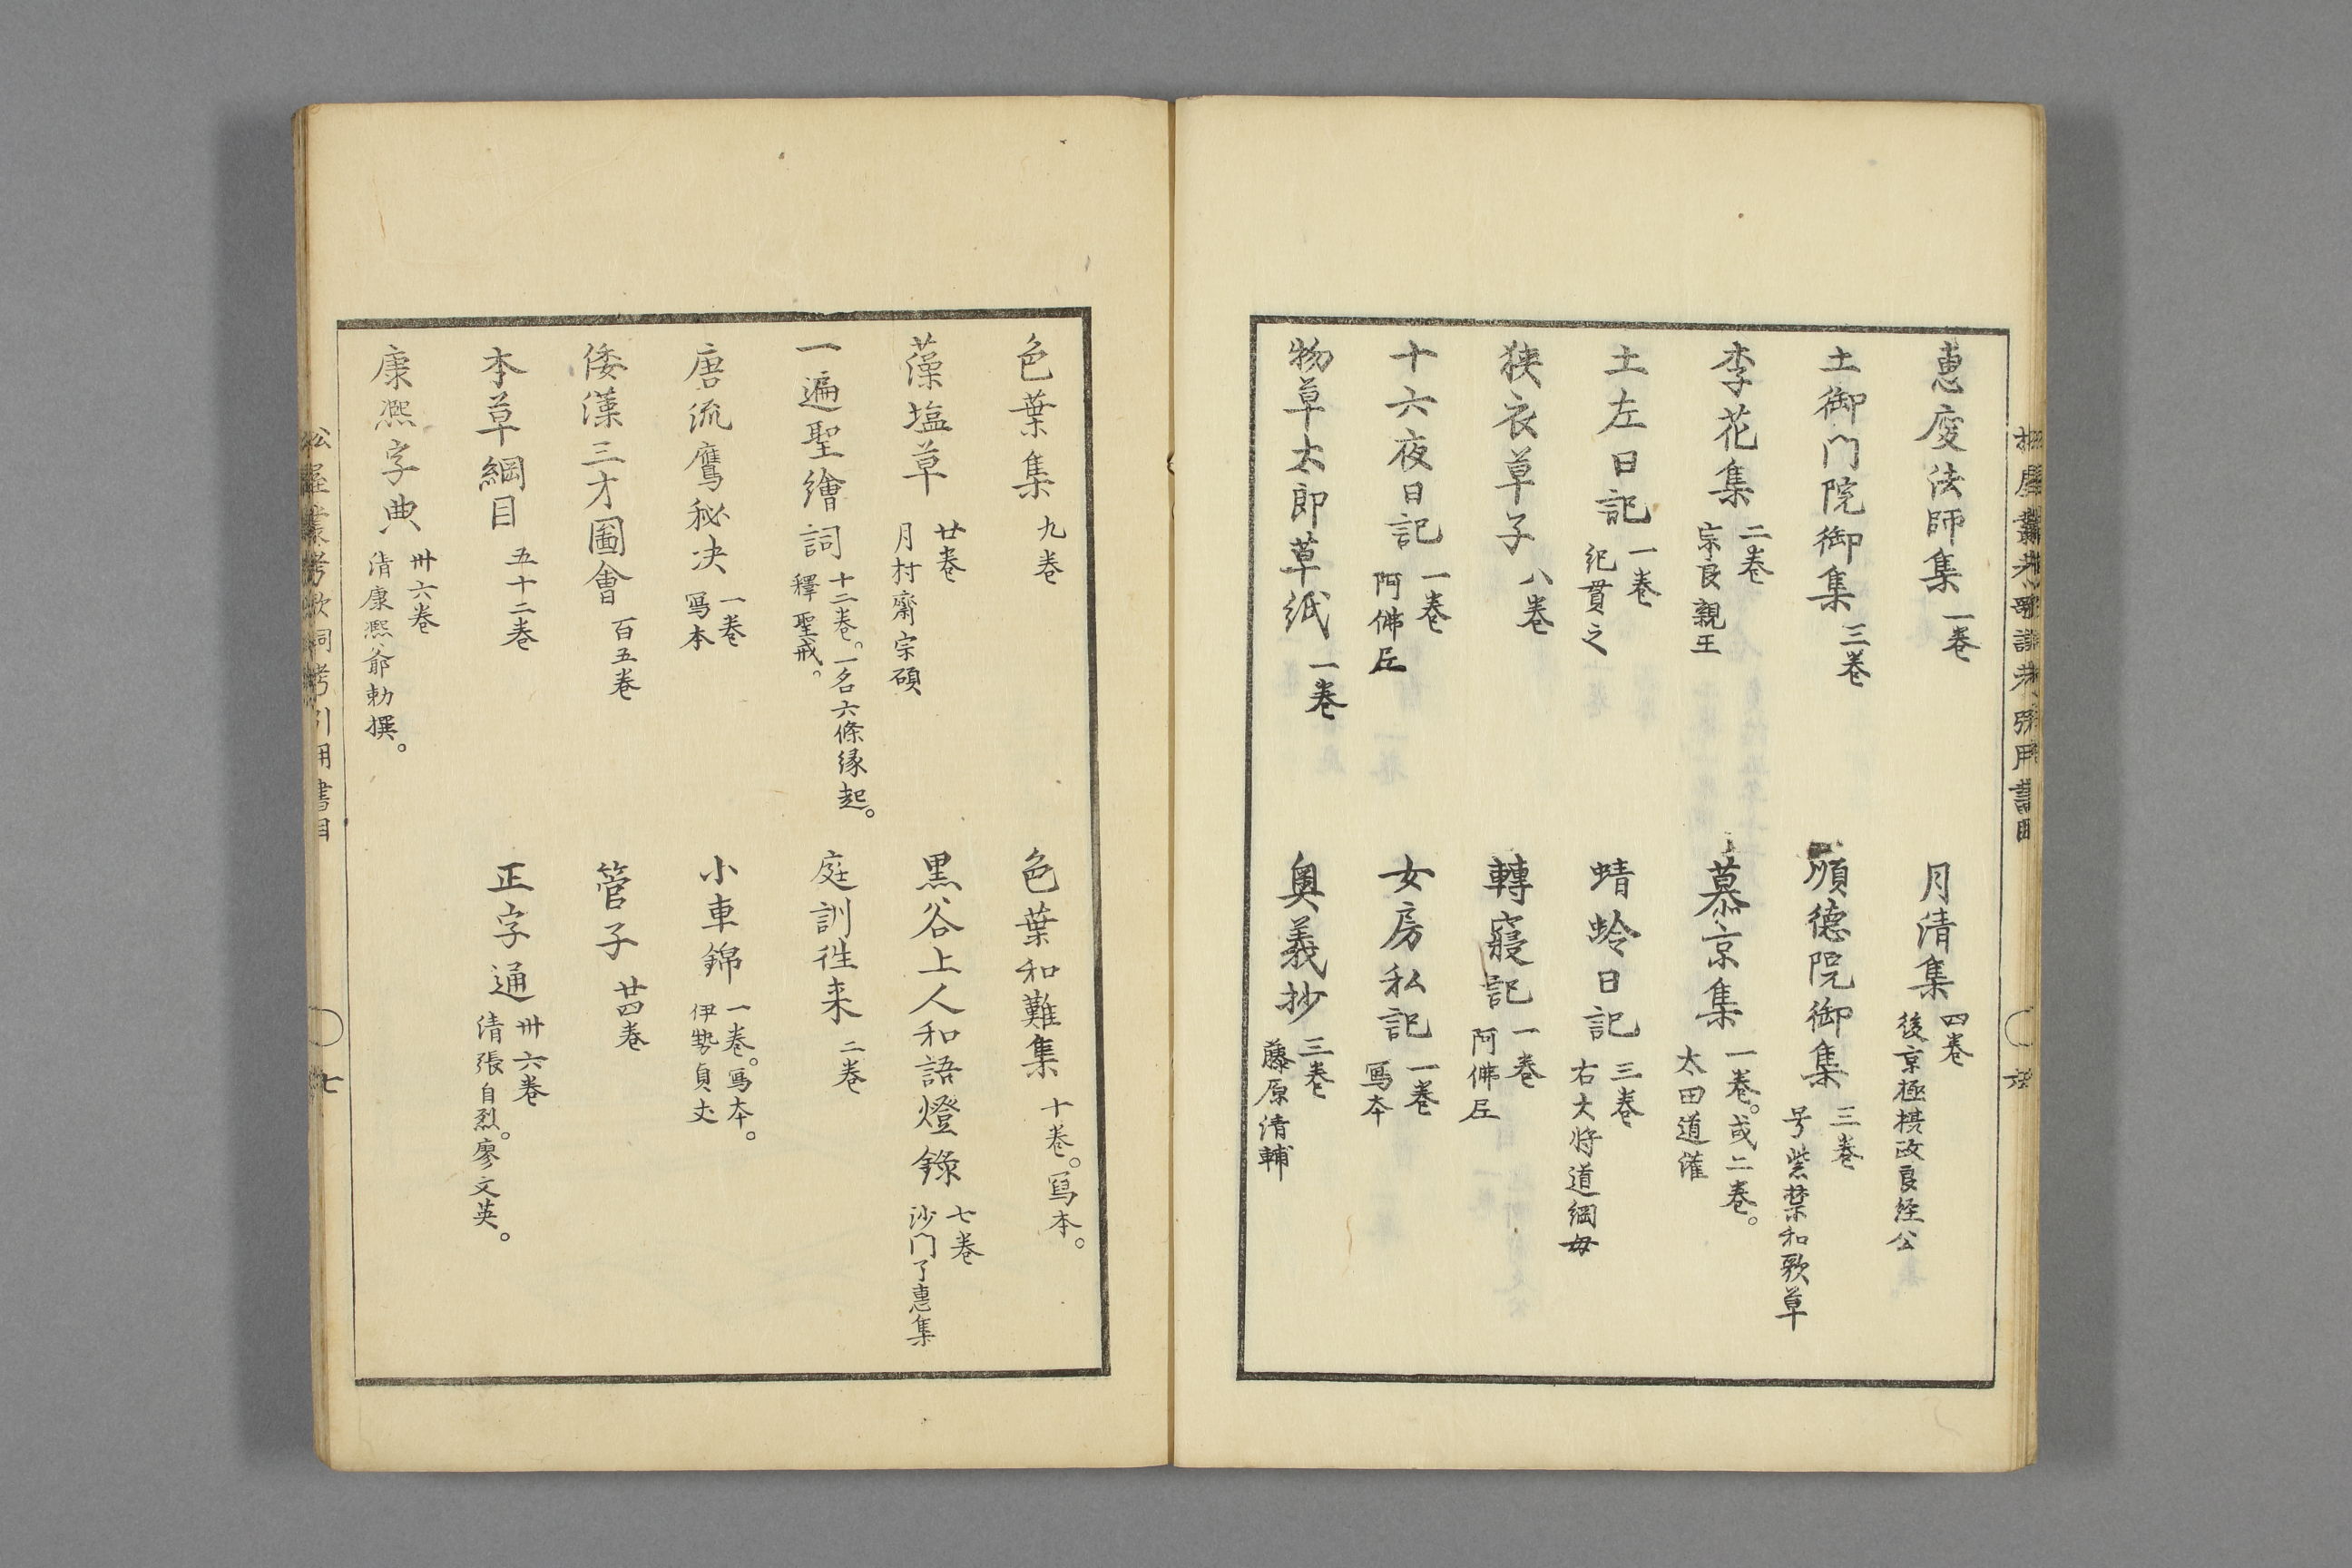 恵慶法師集 一巻
月清集 四巻
後京極摂政良経公
土御门院御集 三巻
順徳院御集 三巻
号紫禁和歌草
李花集 二巻
宗良親王
慕京集 一巻。或二巻。
太田道灌
土左日記 一巻
紀貫之
蜻蛉日記 三巻
右大将道綱母
狭衣草子 八巻
轉寝記 一巻
阿佛尼
十六夜日記 一巻
阿佛尼
女房私記 一巻
寫本
物草太郎草紙 一巻
奥義抄 三巻
藤原清輔
色葉集 九巻
色葉和難集 十巻。寫本。
藻塩草 廿巻
月村齋宗碩
黒谷上人和語燈錄 七巻
沙门了惠集
一遍聖繪詞 十二巻。一名六條縁起。
釋聖戒。
庭訓徃来 二巻
唐流鷹秘决 一巻
寫本
小車錦 一巻。寫本。
伊勢貞丈
倭漢三才圖會 百五巻
管子 廿四巻
本草綱目 五十二巻
正字通 卅六巻
清張自烈。廖文英。
康熙字典 卅六巻
清康熙爺勅撰。
松屋叢考歌詞考引用書目
七